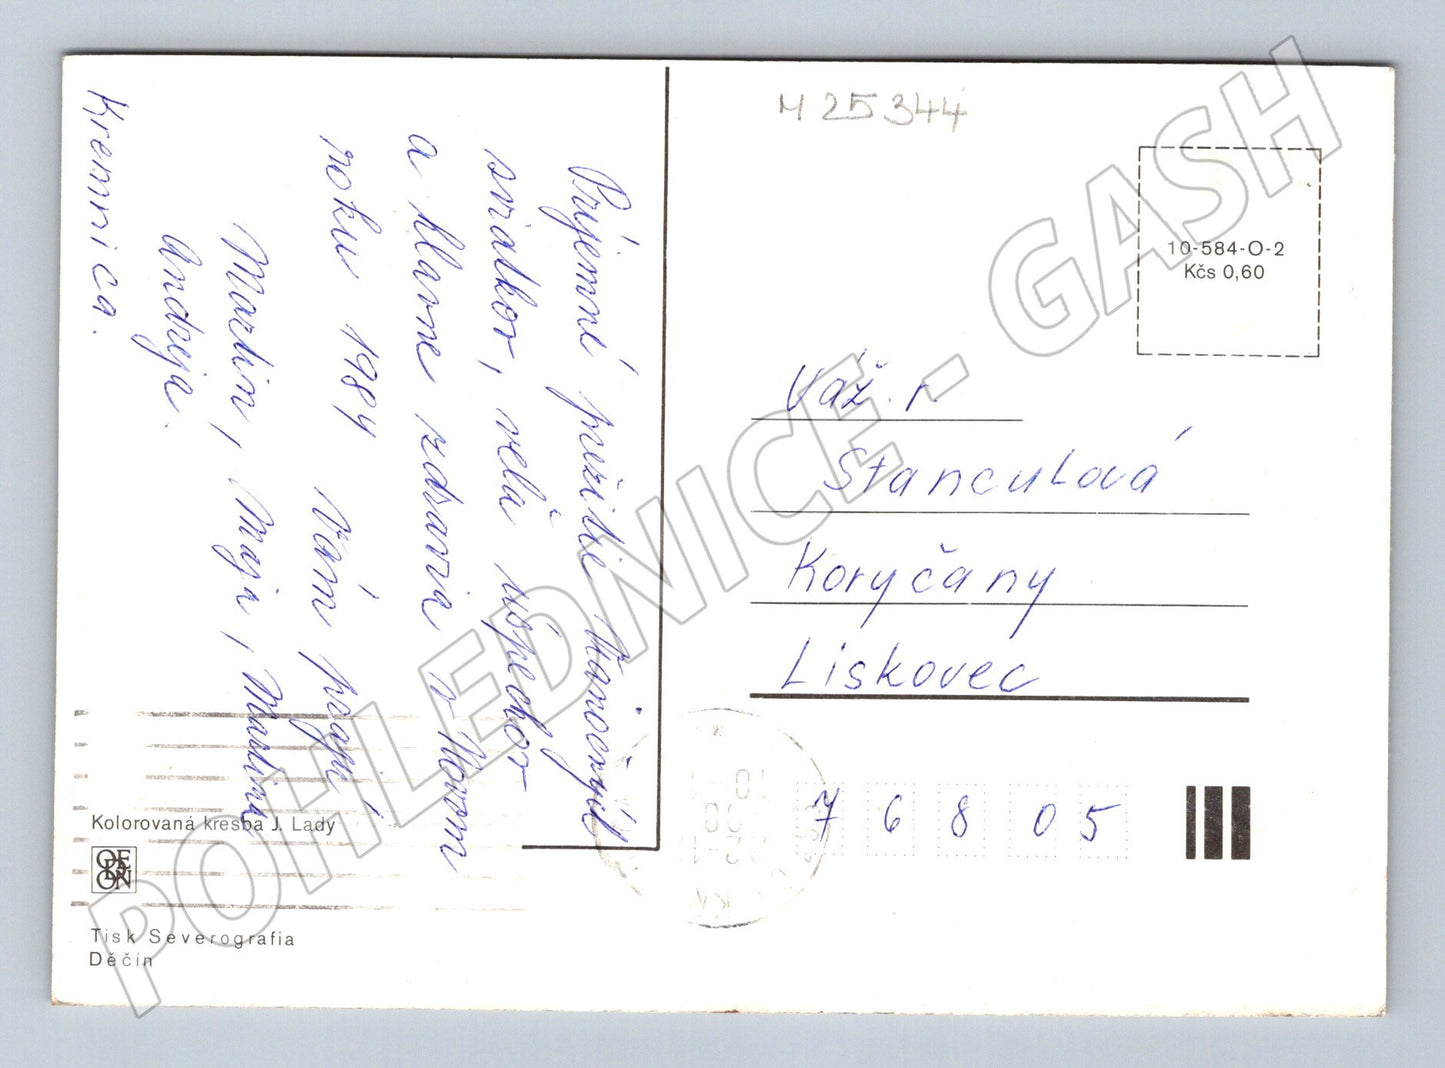 M 25344
Príjemné prežitie Vianočných
sviatkov, veľa úspechov
a hlavne zdravia v Novom
roku 1984 Vám prajú
Martin, Maja, Martina
Andreja.
Kremnica.
10-584-O-2
Kčs 0,60
Váž. r.
Stanculová
Koryčany
Liskovec
7 6 8 0 5
Kolorovaná kresba J. Lady
ODEON
Tisk Severografia
Děčín
POHLEDNICE - GASH